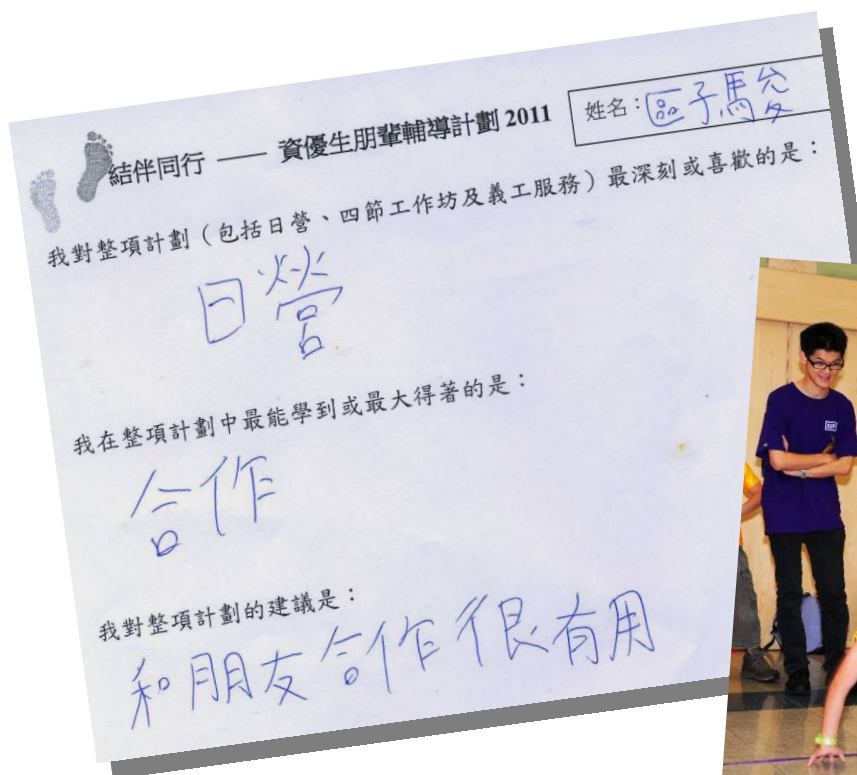 結伴同行 —— 資優生朋輩輔導計劃 2011
姓名：區子馬俊
我對整項計劃（包括日營、四節工作坊及義工服務）最深刻或喜歡的是：
日營
我在整項計劃中最能學到或最大得著的是：
合作
我對整項計劃的建議是：
和朋友合作很有用